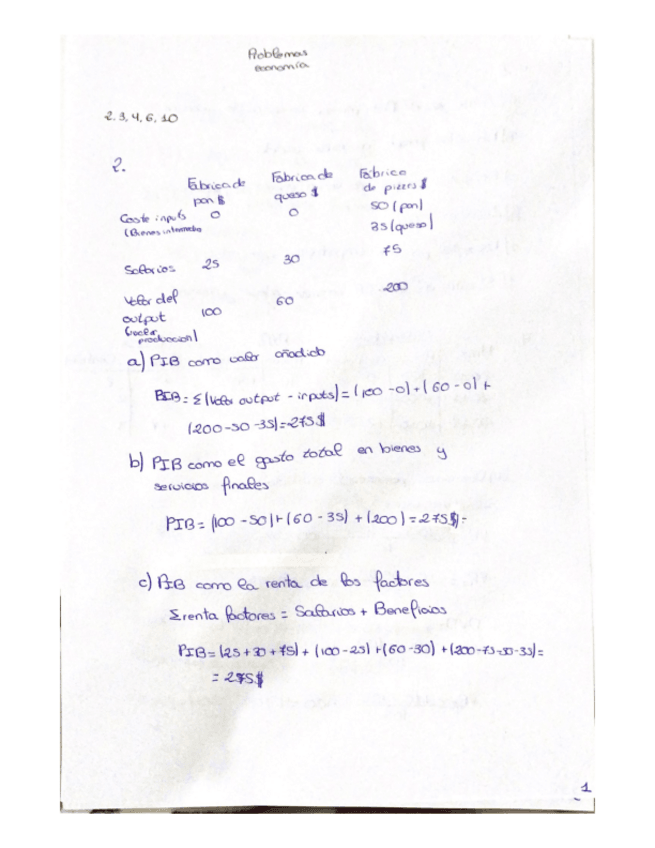 Problemas
economía
2, 3, 4, 6, 10
2.
Fábrica de pan $ Fábrica de queso $ Fábrica de pizzas $
Coste inputs 0 0 50 (pan)
(Bienes intermedios 35 (queso)
Salarios 25 30 75
Valor del output 100 60 200
producción)
a) PIB como valor añadido
PIB = Σ(Valor output - inputs) = (100 - 0) + (60 - 0) +
(200 - 50 - 35) = 275 $
b) PIB como el gasto total en bienes y
servicios finales
PIB = (100 - 50) + (60 - 35) + (200) = 275 $ =
c) PIB como la renta de los factores
Σ renta factores = Salarios + Beneficios
PIB = (25 + 30 + 75) + (100 - 25) + (60 - 30) + (200 - 75 - 50 - 35) =
= 275 $
1